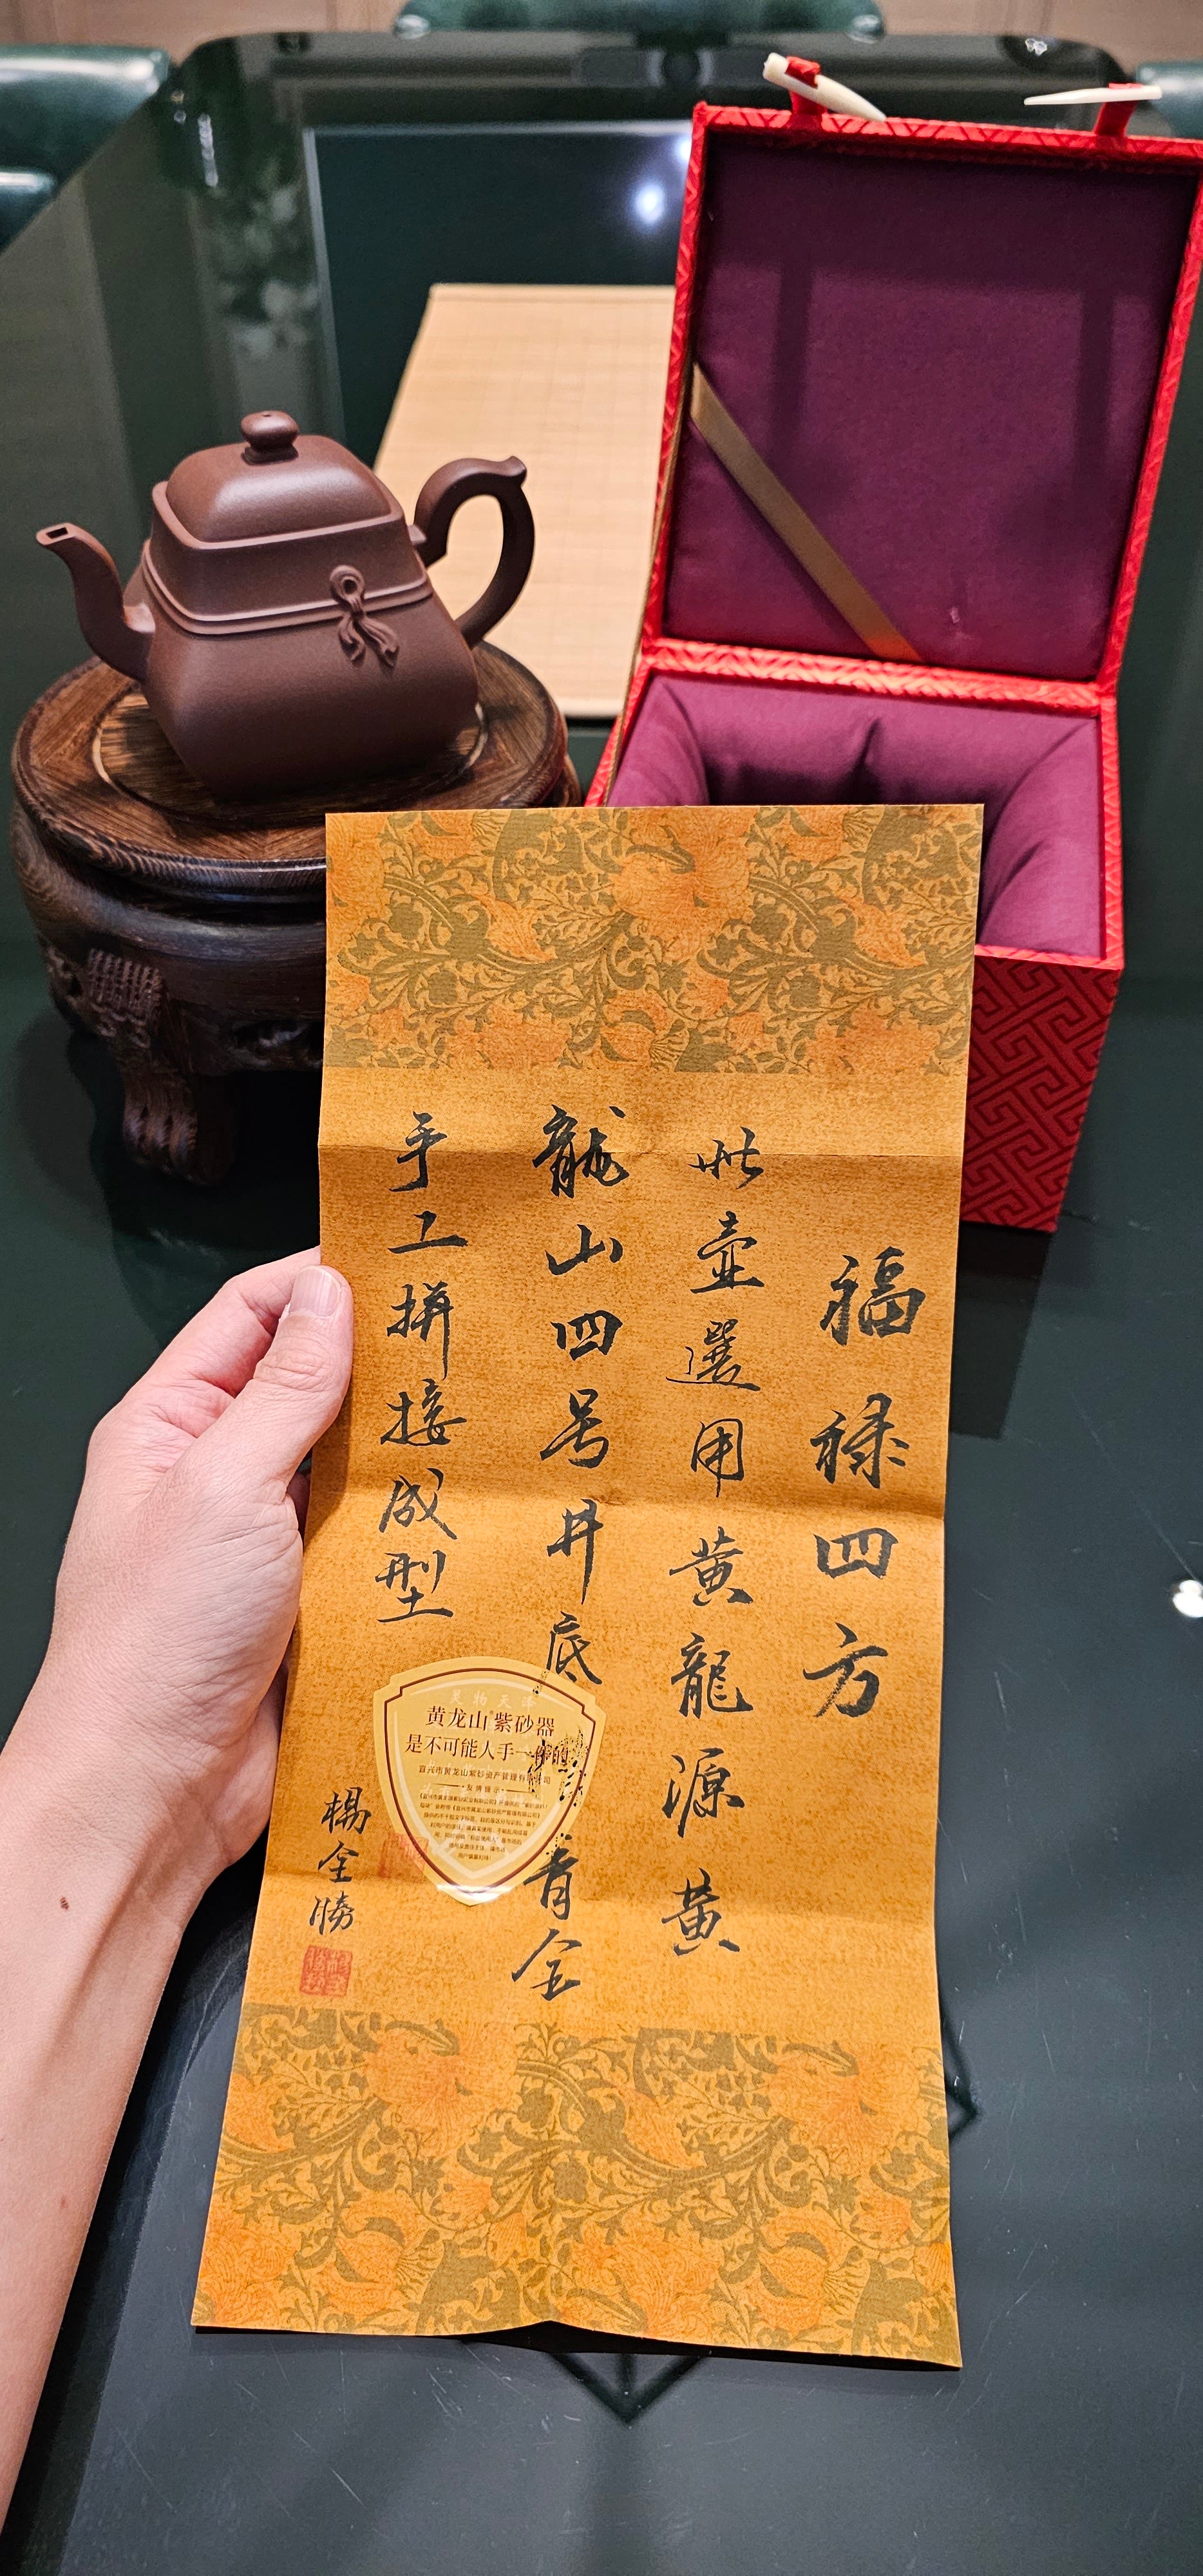 福禄四方
此壶選用黄龍源黄
龍山四号井底 青全
手工拼接成型
楊全勝
灵物天泽
黄龙山紫砂器
是不可能人手一件的
宜兴市黄龙山紫砂资产管理有限公司
友情提示